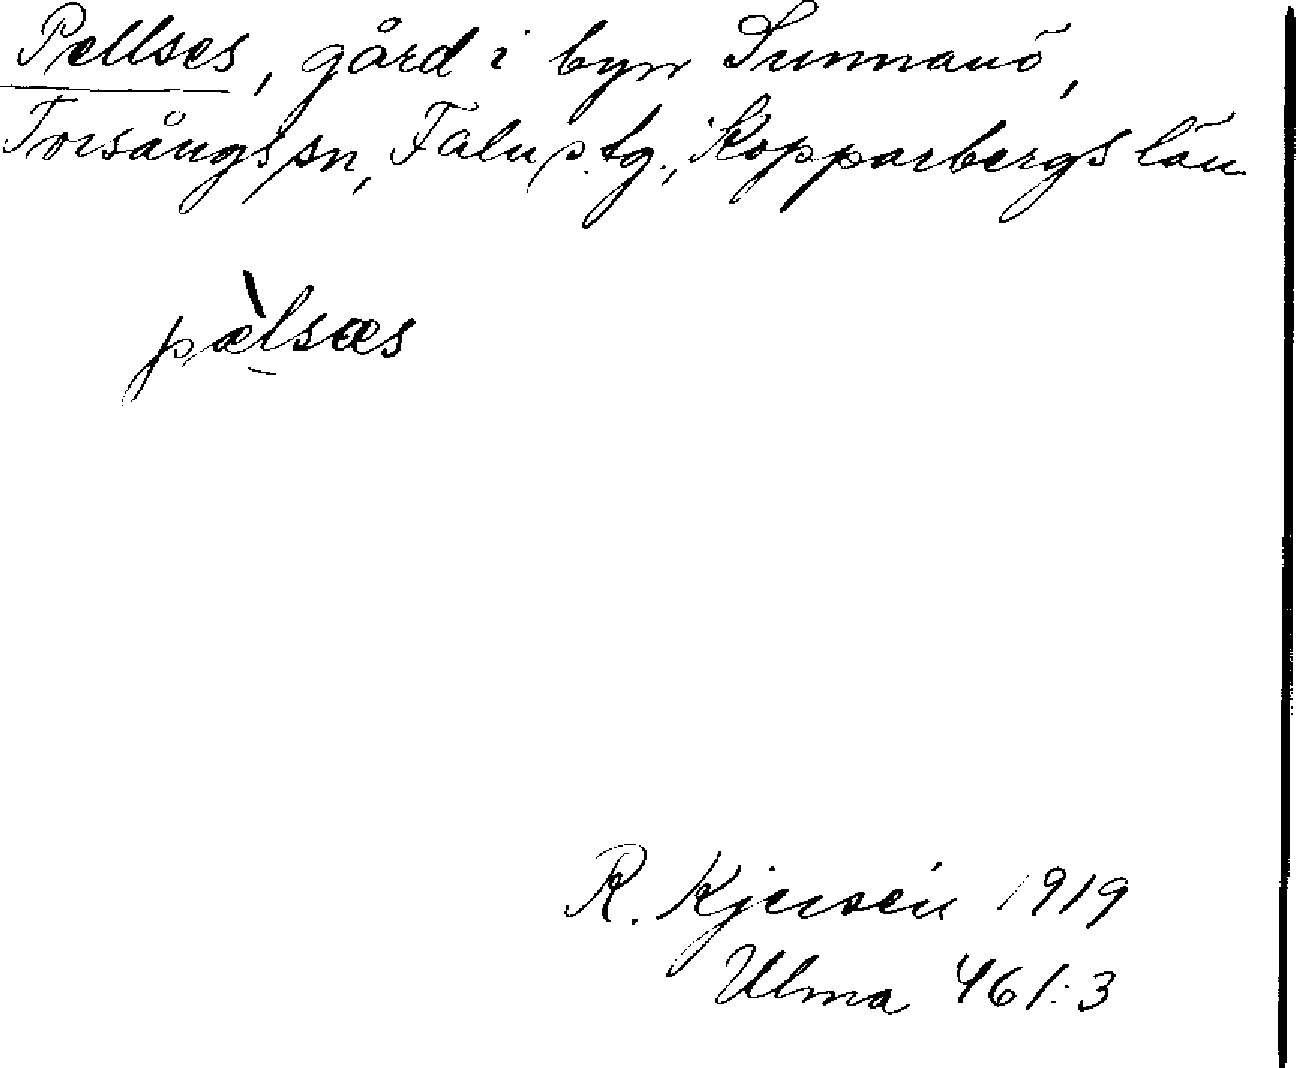 Pellses, gård i byn Sunnanö,
Torsångs sn, Falu s. tg., Kopparbergs län
pæ̀lsæs
R. Kjersén 1919
Ulma 461:3